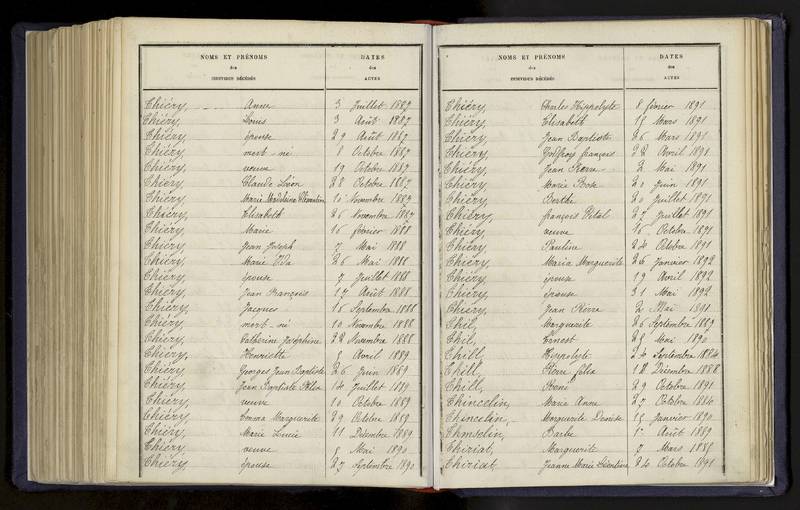 NOMS ET PRÉNOMS
des
INDIVIDUS DÉCÉDÉS
DATES
des
ACTES
Thiéry, Anne 3 Juillet 1887
Thiéry, Louis 3 Août 1887
Thiéry, épouse 29 Août 1887
Thiéry, mort-né 8 Octobre 1887
Thiéry, veuve 19 Octobre 1887
Thiéry, Claude Léon 28 Octobre 1887
Thiéry, Marie Madeleine Novembre 1887
Thiéry, Elisabeth 26 Novembre 1887
Thiéry, Marie 16 février 1888
Thiéry, Jean Joseph 7 Mai 1888
Thiéry, Marie Ida 26 Mai 1888
Thiéry, épouse 7 Juillet 1888
Thiéry, Jean François 17 Août 1888
Thiéry, Jacques 16 Septembre 1888
Thiéry, mort-né 10 Novembre 1888
Thiéry, Catherine Joséphine 22 Novembre 1888
Thiéry, Henriette Avril 1889
Thiéry, Georges Jean Baptiste 26 Juin 1889
Thiéry, Jean Baptiste 14 Juillet 1889
Thiéry, veuve 10 Octobre 1889
Thiéry, Emma Marguerite 29 Octobre 1889
Thiéry, Marie Lucie 11 Décembre 1889
Thiéry, veuve Mai 1890
Thiéry, épouse 27 Septembre 1890
NOMS ET PRÉNOMS
des
INDIVIDUS DÉCÉDÉS
DATES
des
ACTES
Thiéry, Charles Hippolyte 8 février 1891
Thiéry, Elisabeth 17 Mars 1891
Thiéry, Jean Baptiste 26 Mars 1891
Thiéry, François 22 Avril 1891
Thiéry, Jean Pierre 2 Mai 1891
Thiéry, Marie Rose Juin 1891
Thiéry, Berthe Juillet 1891
Thiéry, françois Vital 27 Juillet 1891
Thiéry, veuve 16 Octobre 1891
Thiéry, Pauline 24 Octobre 1891
Thiéry, Maria Marguerite 26 Janvier 1892
Thiéry, épouse 19 Avril 1892
Thiéry, épouse 31 Mai 1892
Thiéry, Jean Pierre 2 Mai 1891
Thil, Marguerite 26 Septembre 1889
Thil, Ernest Mai 1890
Thill, Hippolyte 24 Septembre 1884
Thill, Pierre félix 12 Décembre 1888
Thill, René 29 Octobre 1891
Thincelin, Marie Anne 27 Octobre 1884
Thincelin, Marguerite Denise Janvier 1890
Thinselin, Barbe Août 1889
Thiriat, Marguerite Mars 1885
Thiriat, Jeanne Marie 24 Octobre 1891